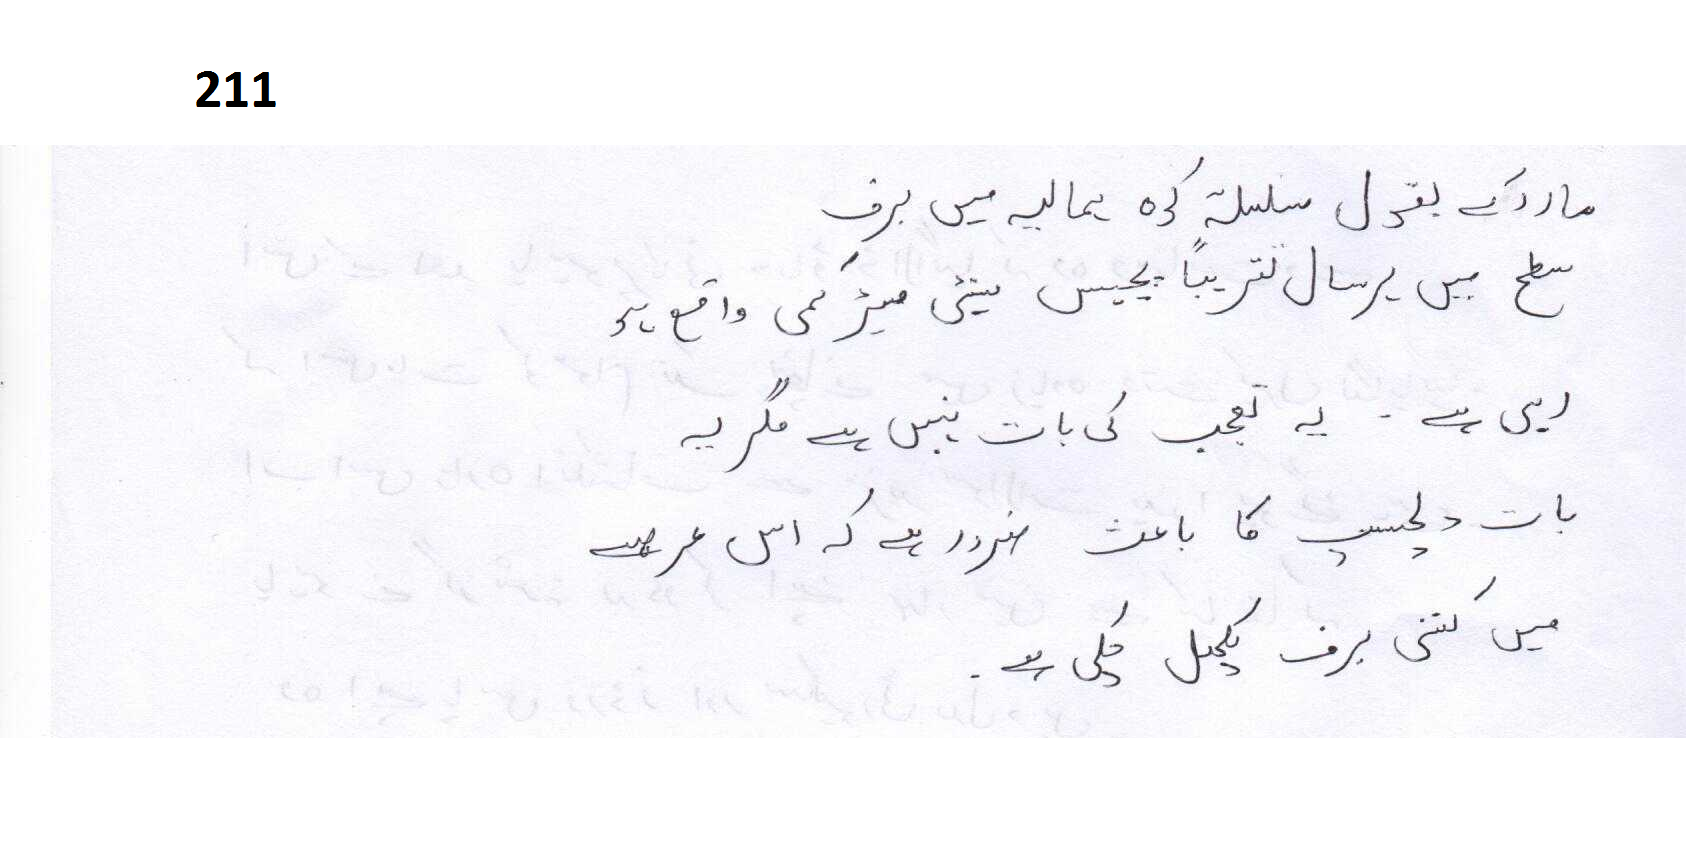 211
مارد کے بقول سلسلۂ کوہ ہمالیہ میں برف
سطح میں ہر سال تقریباً پچیس سینٹی میٹر کمی واقع ہو
رہی ہے ۔ یہ تعجب کی بات نہیں ہے مگر یہ
بات دلچسپی کا باعث ضرور ہے کہ اس عرصے
میں کتنی برف پگھل چکی ہے ۔